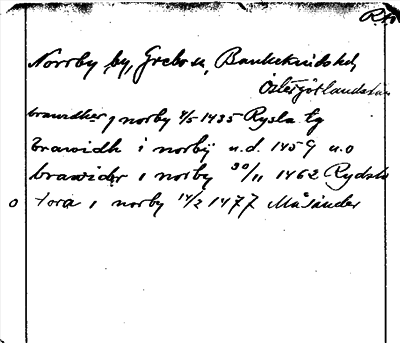 Norrby by, Grebo sn, Bankekinds hd,
Östergötlands län
brawidher j norby 4/5 1435 Rysla
brawidh i norby u.d. 1459 u.o
brawider i norby 30/11 1462 Rydsla
o tora i norby 14/2 1477 Måsänder